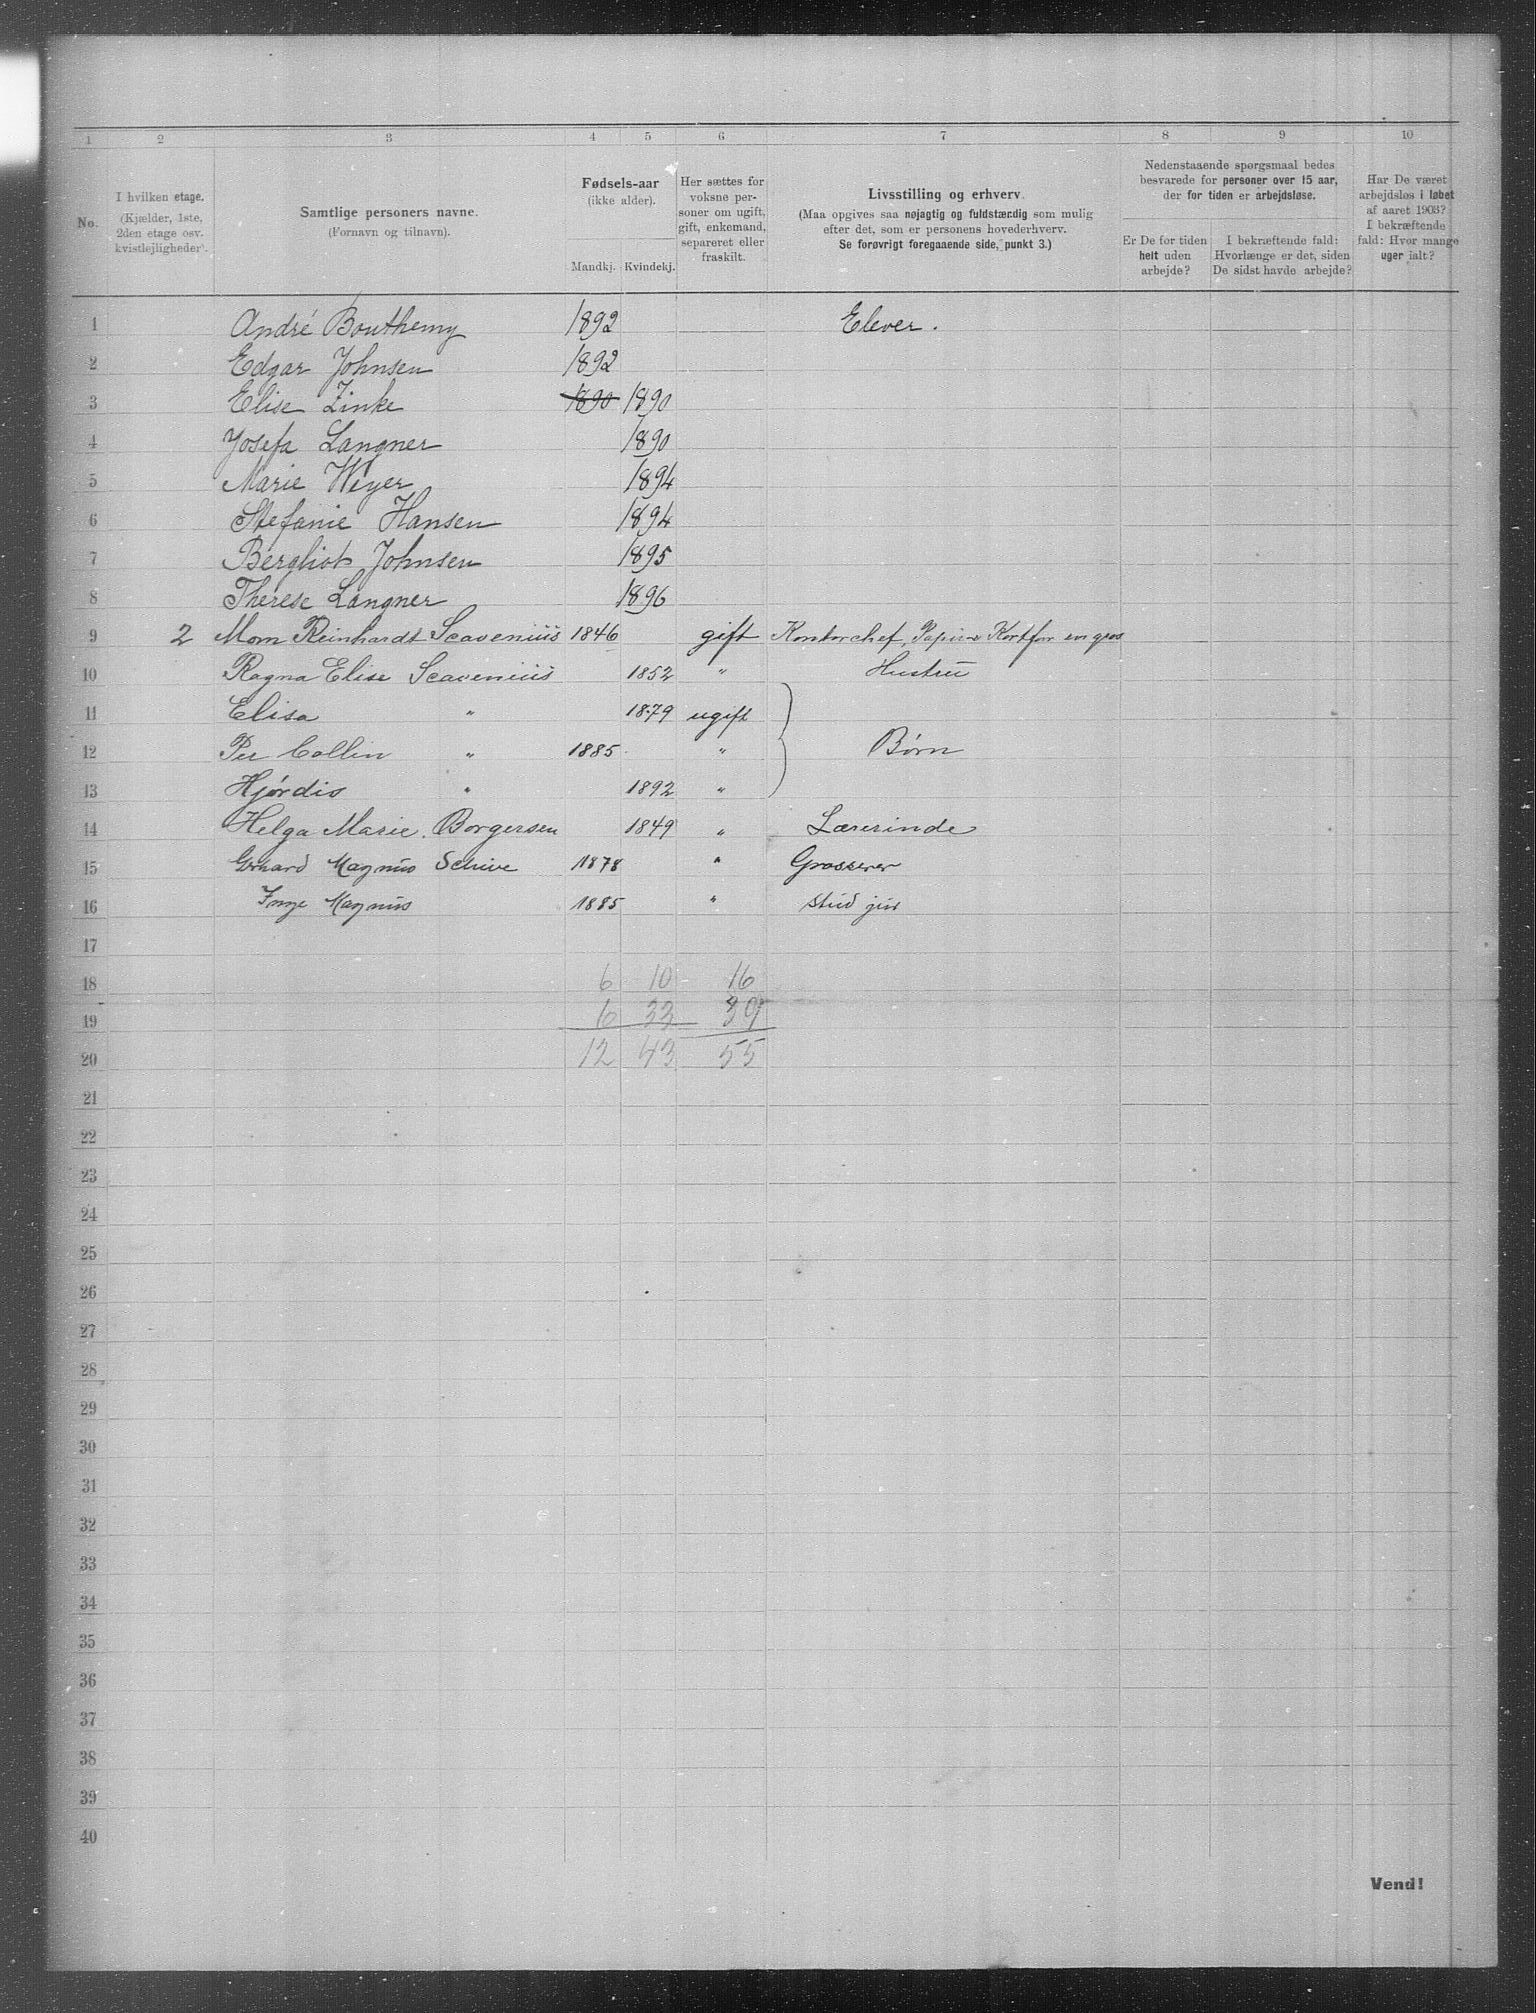 1 2 3 4 5 6 7 8 9 10
No.
I hvilken etage.
(Kjælder, 1ste, 2den etage osv. kvistlejligheder).
Samtlige personers navne.
(Fornavn og tilnavn).
Fødsels-aar
(ikke alder).
Mandkj. Kvindekj.
Her sættes for voksne personer om ugift, gift, enkemand, separeret eller fraskilt.
Livsstilling og erhverv.
(Maa opgives saa nøjagtig og fuldstærdig som mulig efter det, som er personens hovederhverv.
Se forøvrigt foregaaende side, punkt 3.)
Nedenstaaende spørgsmaal bedes besvarede for personer over 15 aar, der for tiden er arbejdsløse.
Er De for tiden helt uden arbejde?
I bekræftende fald: Hvorlænge er det, siden De sidst havde arbejde?
Har De været arbejdsløs i løbet af aaret 1903?
I bekræftende fald: Hvor mange uger ialt?
1 André Bouthemy 1892 Elever.
2 Edgar Johnsen 1892
3 Elise Zinke 1890 1890
4 Josefa Langner 1890
5 Marie Weyer 1894
6 Stefanie Hansen 1894
7 Bergliot Johnsen 1895
8 Therese Langner 1896
9 2 Morn Reinhardt Scavenius 1846 gift Kontorchef, Papir & Kortforr en gros
10 Ragna Elise Scavenius 1852 " Hustru
11 Elisa " 1879 ugift
12 Per Collin " 1885 " Børn
13 Hjørdis " 1892 "
14 Helga Marie Borgersen 1849 " Lærerinde
15 Gerhard Magnus Schive 1878 " Grosserer
16 Inge Magnus 1885 " stud jur
17
18 6 10 16
19 6 33 39
20 12 43 55
21
22
23
24
25
26
27
28
29
30
31
32
33
34
35
36
37
38
39
40
Vend!